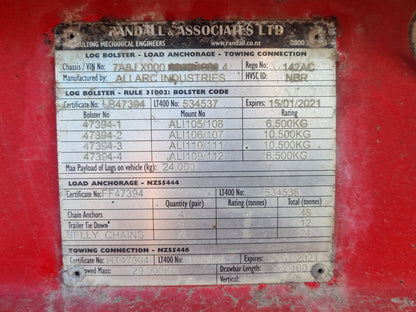 RANDALL & ASSOCIATES LTD
CONSULTING MECHANICAL ENGINEERS www.randall.co.nz 0800
LOG BOLSTER - LOAD ANCHORAGE - TOWING CONNECTION
Chassis / VIN No: Rego No: 142AC
Manufactured by: ALLARC INDUSTRIES HVSC ID: NBR
LOG BOLSTER - RULE 31002: BOLSTER CODE
Certificate No: LB47394 LT400 No: 534537 Expires: 15/01/2021
Bolster No Mount No Rating
47394-1 ALI105/108 6,500KG
47394-2 ALI106/107 10,500KG
47394-3 ALI110/111 10,500KG
47394-4 ALI109/112 6,500KG
Max Payload of Logs on vehicle (kg): 24,000
LOAD ANCHORAGE - NZS5444
Certificate No: FF47394 LT400 No: 534538
Quantity (pair) Rating (tonnes) Total (tonnes)
Chain Anchors 4 6 48
Trailer Tie Down 12
BELLY CHAINS 24
TOWING CONNECTION - NZS5446
Certificate No: HT47394 LT400 No: Expires: 2021
owed Mass: Drawbar Length: 160
Vertical: